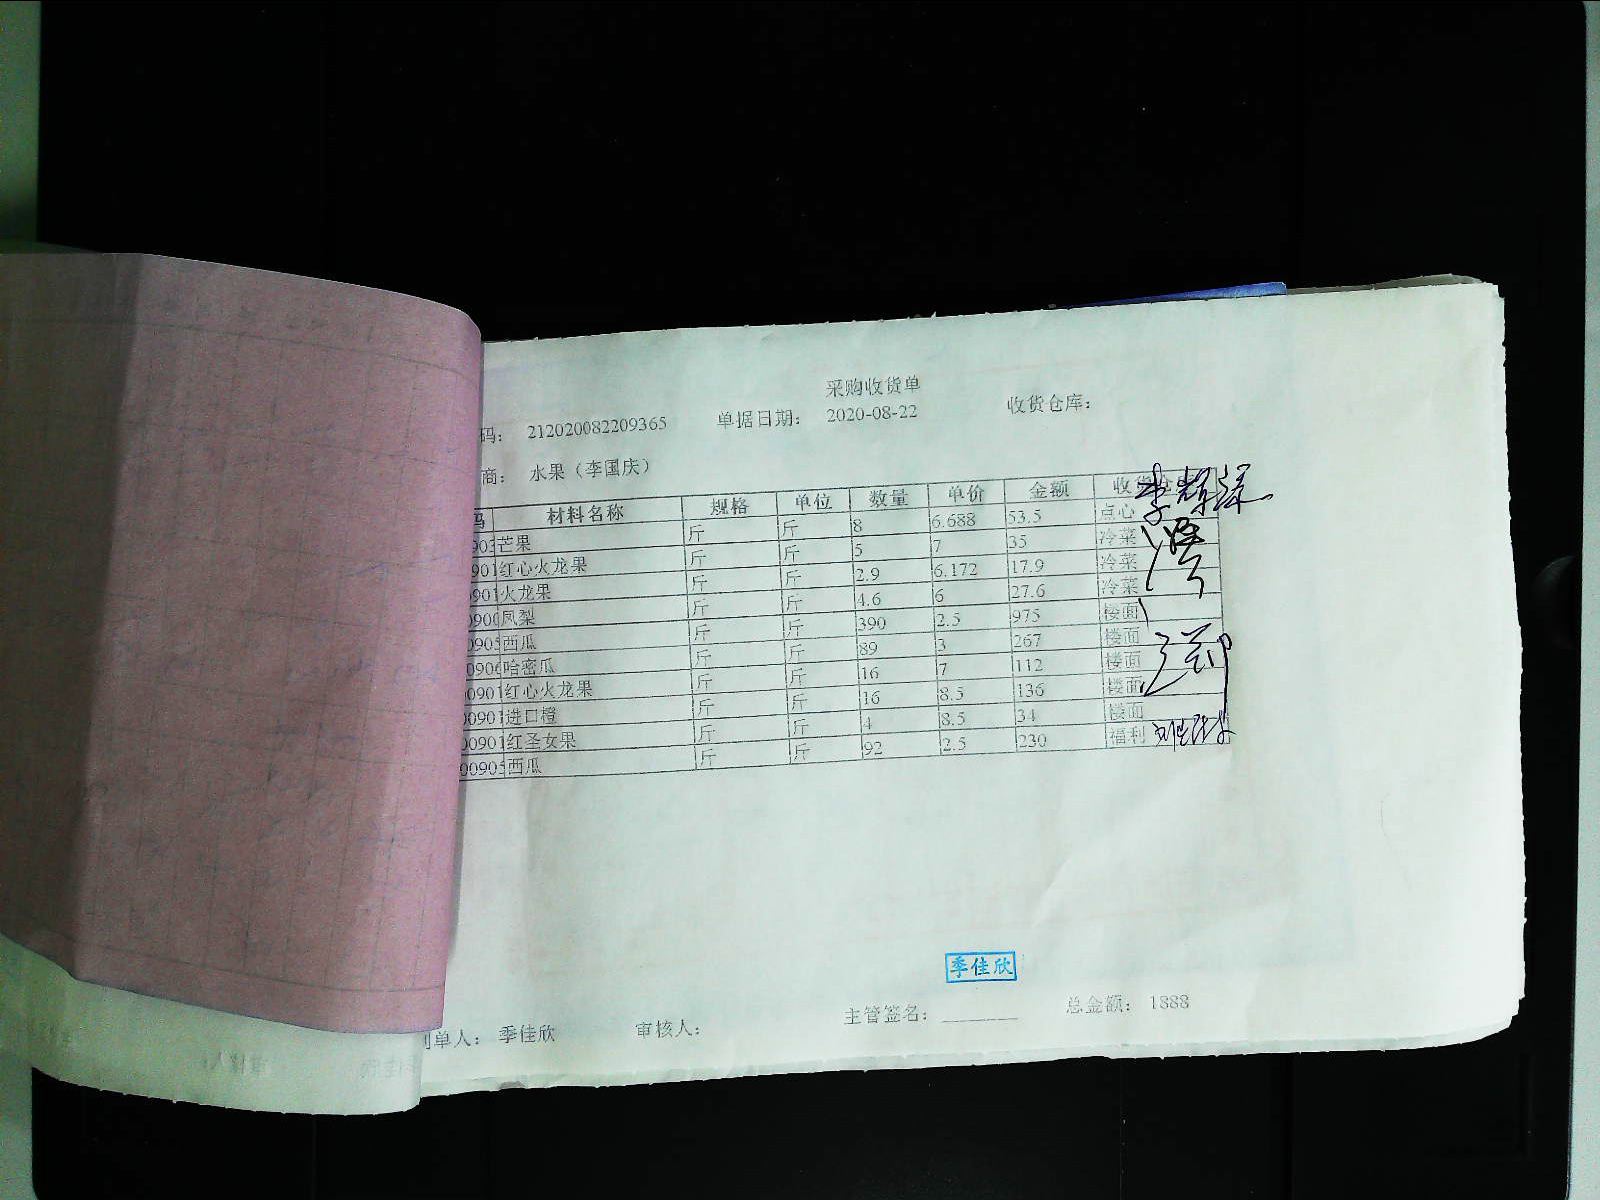 采购收货单
码： 212020082209365 单据日期： 2020-08-22 收货仓库：
商： 水果（李国庆）
码 材料名称 规格 单位 数量 单价 金额 收货
芒果 斤 斤 8 6.688 53.5 点心
红心火龙果 斤 斤 5 7 35 冷菜
火龙果 斤 斤 2.9 6.172 17.9 冷菜
凤梨 斤 斤 4.6 6 27.6 冷菜
西瓜 斤 斤 390 2.5 975 楼面
哈密瓜 斤 斤 89 3 267 楼面
红心火龙果 斤 斤 16 7 112 楼面
进口橙 斤 斤 16 8.5 136 楼面
红圣女果 斤 斤 4 8.5 34 楼面
西瓜 斤 斤 92 2.5 230 福利
季佳欣
制单人： 季佳欣 审核人： 主管签名： 总金额： 1888